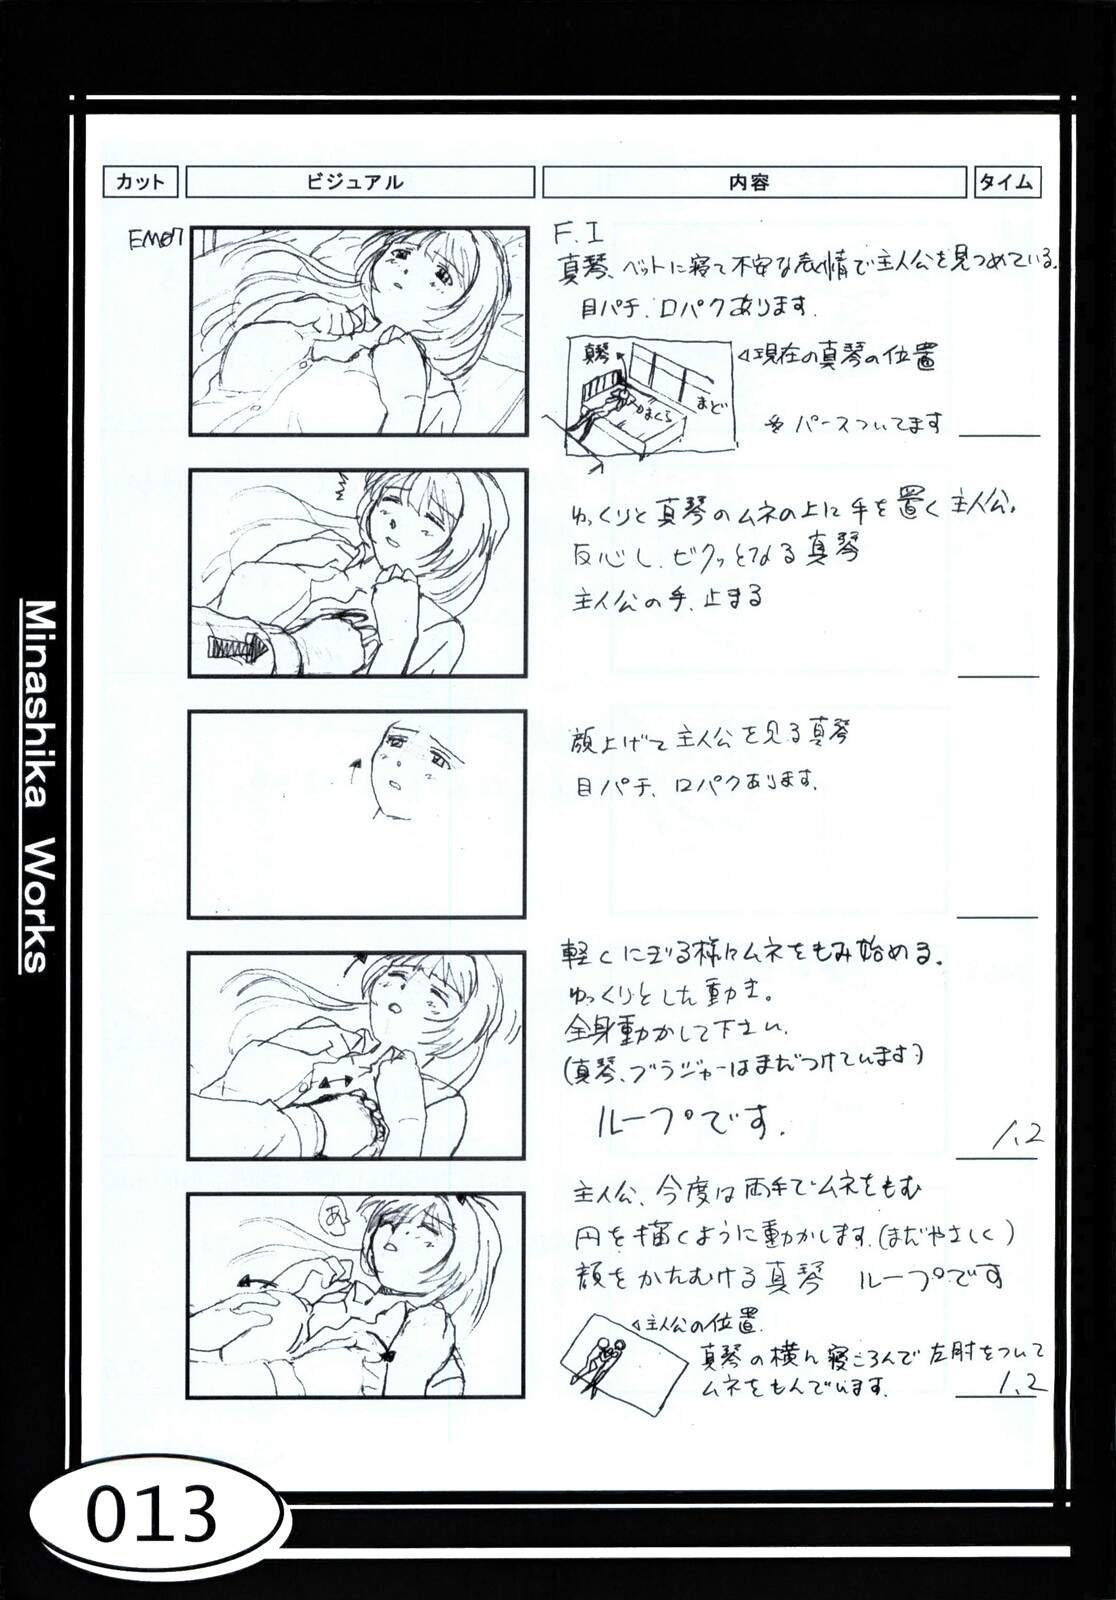 カット ビジュアル 内容 タイム
EM07
F.I
真琴、ベットに寝て不安な表情で主人公を見つめている。
目パチ、口パクあります。
真琴
まくら
まど
◁現在の真琴の位置
※パースついてます
ゆっくりと真琴のムネの上に手を置く主人公。
反応し、ビクッとなる真琴
主人公の手、止まる
顔上げて主人公を見る真琴
目パチ、口パクあります。
軽くにぎる様にムネをもみ始める。
ゆっくりとした動き。
全身動かして下さい。
(真琴、ブラジャーはまだつけています)
ループです。
1.2
あっ
主人公、今度は両手でムネをもむ
円を描くように動かします。(まだやさしく)
顔をかたむける真琴 ループです
◁主人公の位置
真琴の横に寝ころんで左肘をついて
ムネをもんでいます。
1.2
Minashika Works
013